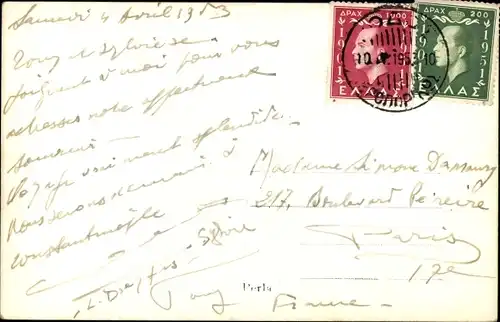 Samedi 4 Avril 1953
Tony et Sylvie se
joignent à moi pour vous
adresser notre affectueux
souvenir
Voyage vraiment splendide
Nous serons demain à
Constantinople
Sylvie
Tony
ΔΡΑΧ 1000
1901 1951
ΕΛΛΑΣ
ΔΡΑΧ 200
1951
ΕΛΛΑΣ
1953
Madame Simone
217, Boulevard Péreire
Paris
17e
Perla